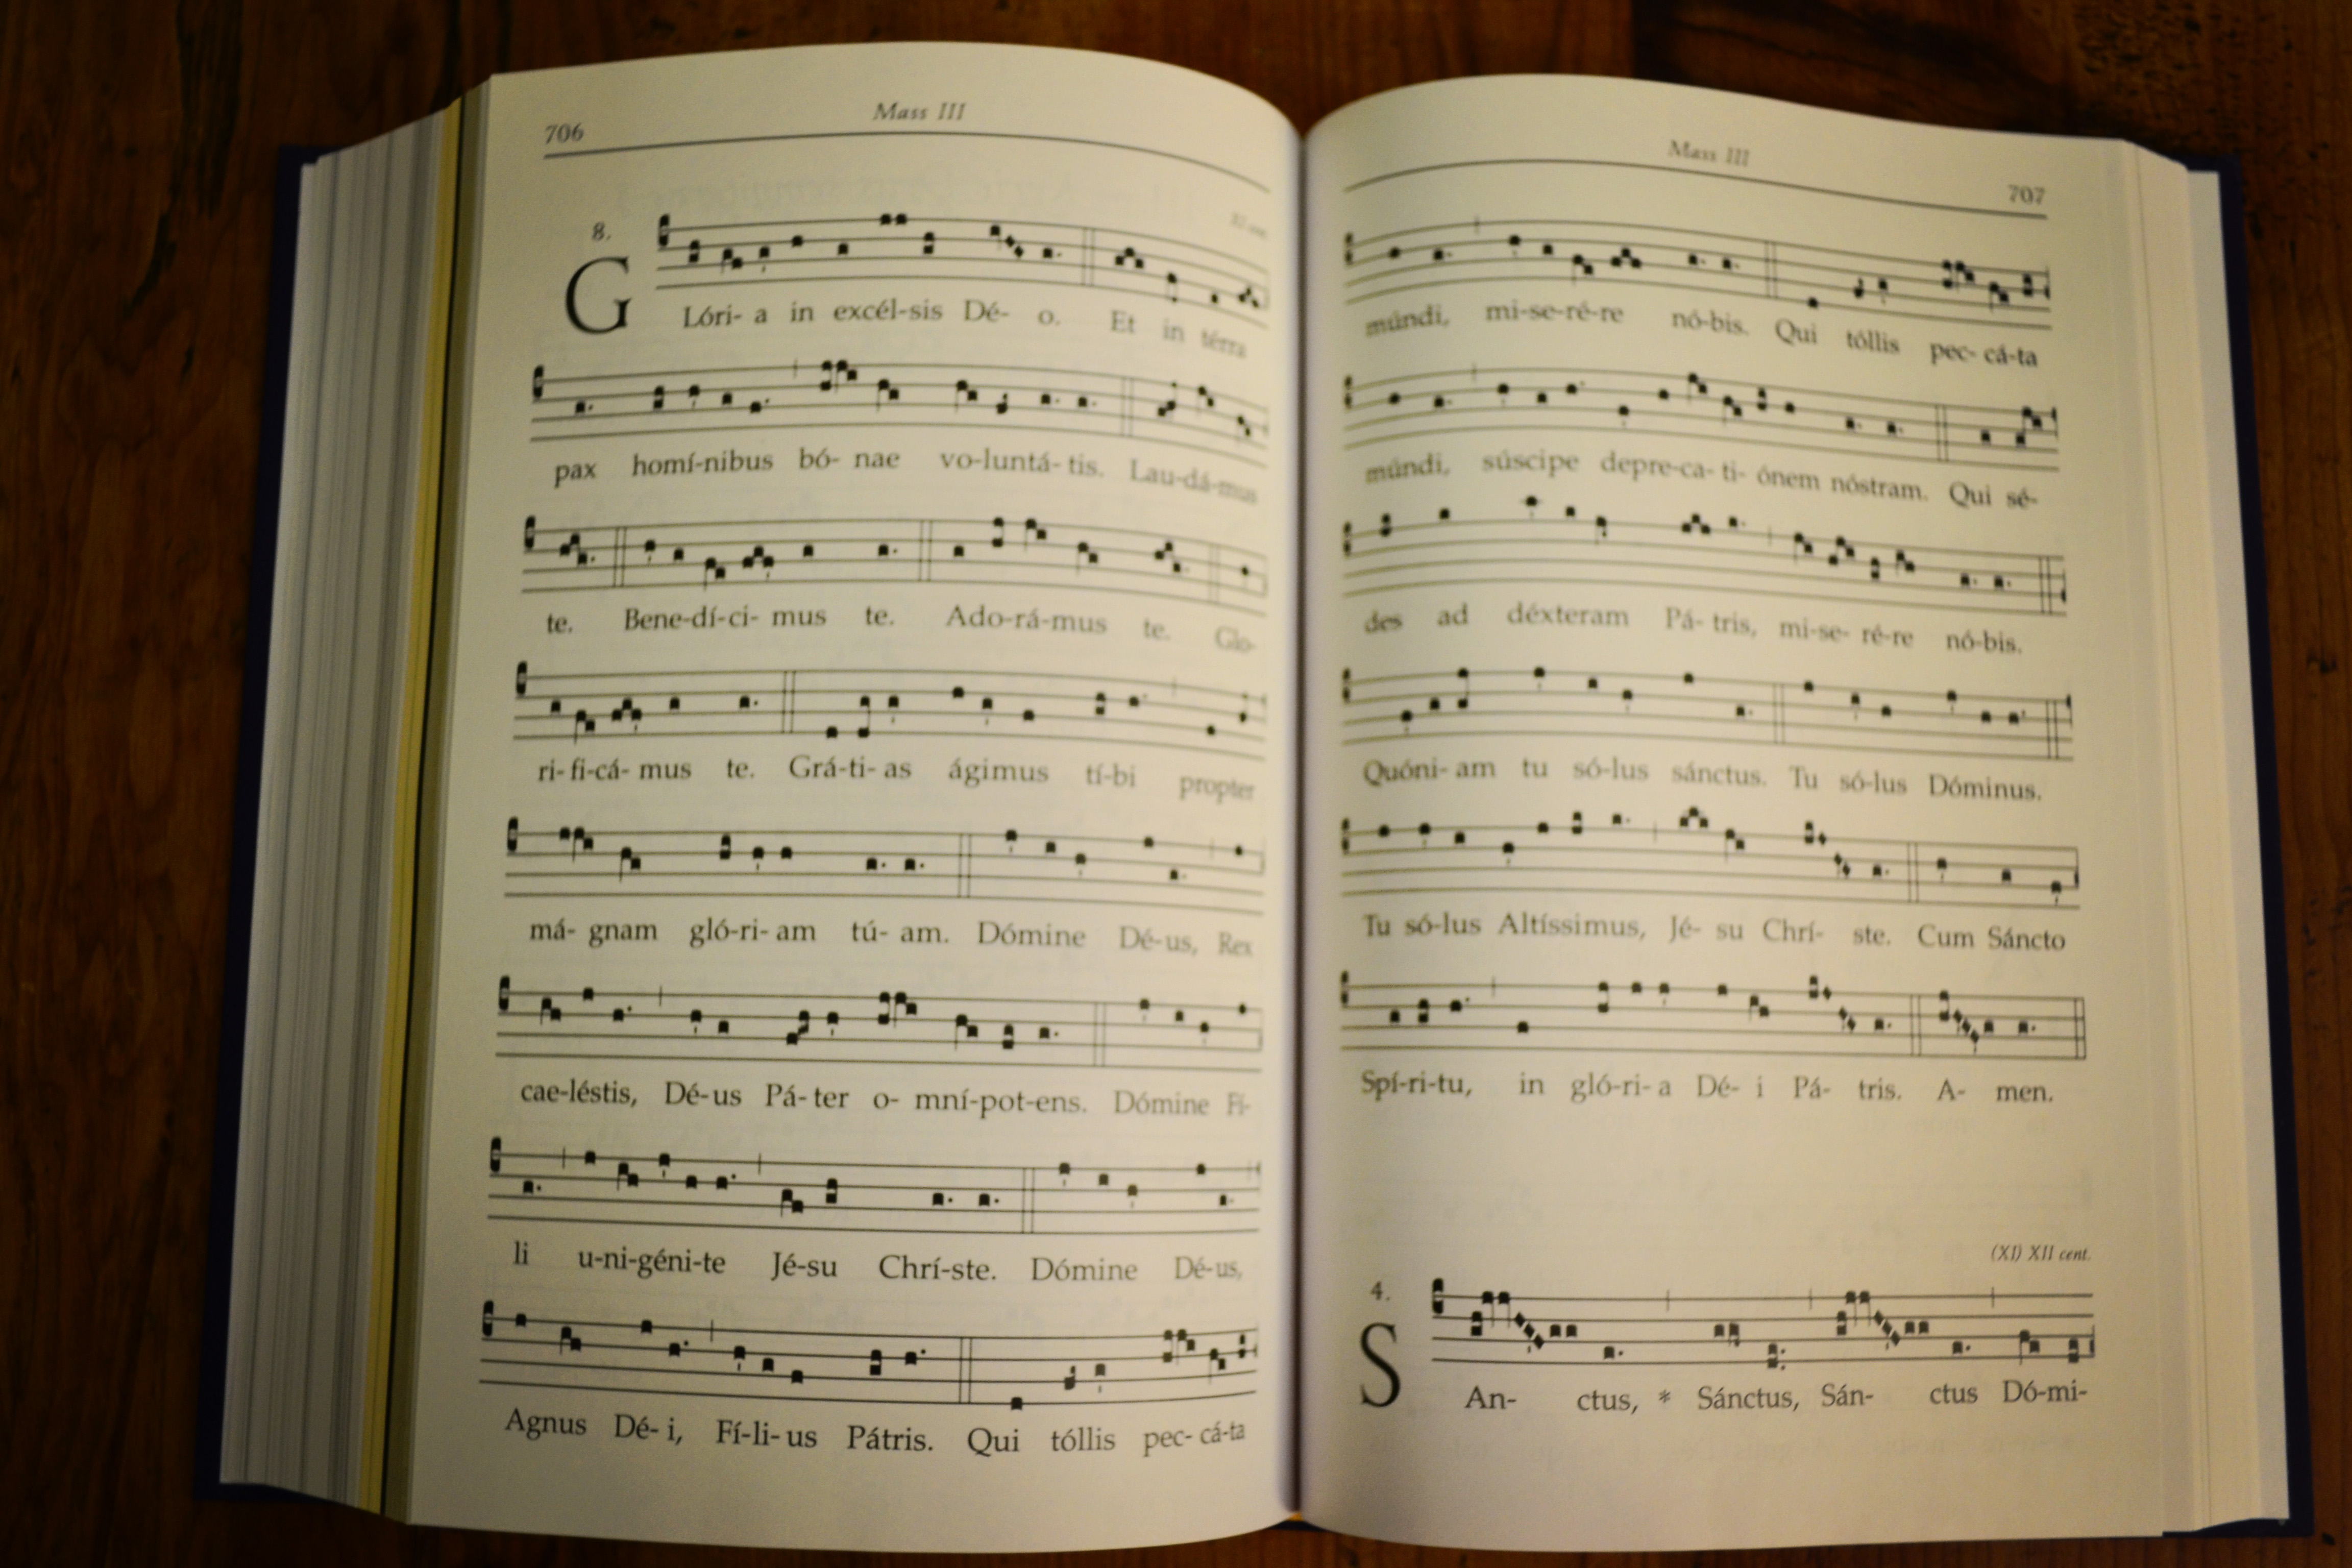 706
Mass III
8.
GLóri- a in excél-sis Dé- o. Et in térra
pax homí-nibus bó- nae vo-luntá- tis. Lau-dá-mus
te. Bene-dí-ci- mus te. Ado-rá-mus te. Glo-
ri- fi-cá- mus te. Grá-ti- as ágimus tí-bi propter
má- gnam gló-ri- am tú- am. Dómine Dé-us, Rex
cae-léstis, Dé-us Pá- ter o- mní-pot-ens. Dómine Fí-
li u-ni-géni-te Jé-su Chrí-ste. Dómine Dé-us,
Agnus Dé- i, Fí-li- us Pátris. Qui tóllis pec- cá-ta
Mass III
707
múndi, mi-se-ré-re nó-bis. Qui tóllis pec- cá-ta
múndi, súscipe depre-ca- ti- ónem nóstram. Qui sé-
des ad déxteram Pá- tris, mi-se- ré-re nó-bis.
Quóni- am tu só-lus sánctus. Tu só-lus Dóminus.
Tu só-lus Altíssimus, Jé- su Chrí- ste. Cum Sáncto
Spí-ri-tu, in gló-ri- a Dé- i Pá- tris. A- men.
(XI) XII cent.
4.
SAn- ctus, * Sánctus, Sán- ctus Dó-mi-